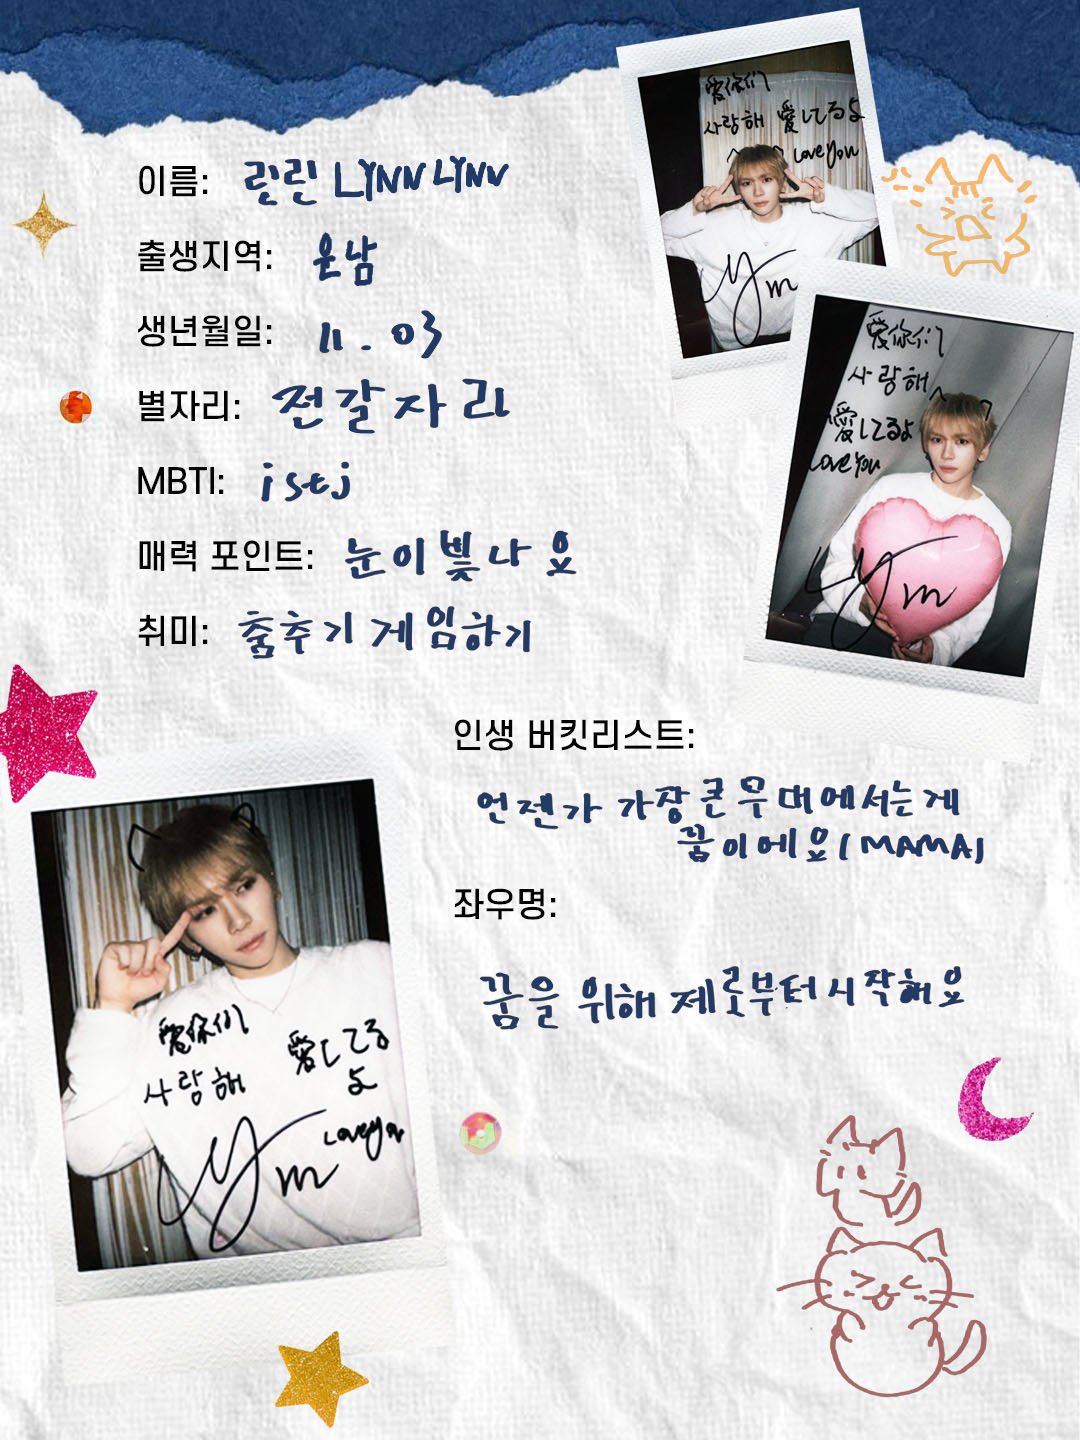 爱你们
사랑해 愛してるよ
Love You
Lynn
이름: 린린 LYNN LYNN
출생지역: 운남
생년월일: 11.03
별자리: 전갈자리
MBTI: istj
매력 포인트: 눈이 빛나요
취미: 춤추기 게임하기
爱你们
사랑해
愛してるよ
Love You
Lynn
인생 버킷리스트:
언젠가 가장 큰 무대에 서는게
꿈이에요(MAMA)
좌우명:
꿈을 위해 제로부터 시작해요
爱你们
사랑해
愛してる
よ
Love You
Lynn